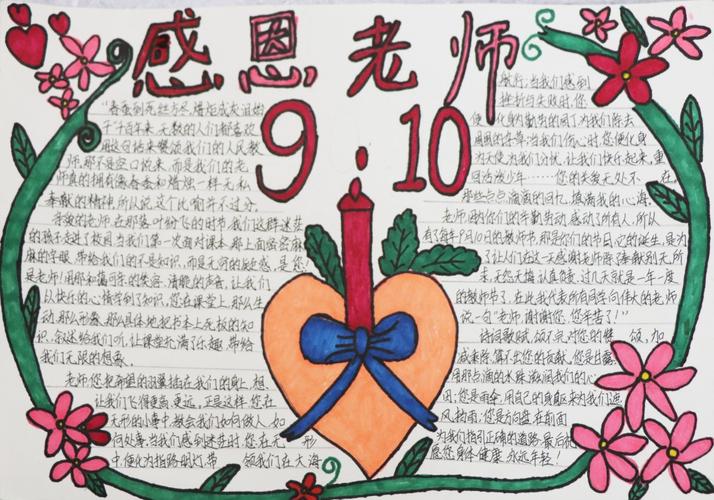 感恩老师
9.10
"春蚕到死丝方尽,蜡炬成灰泪始
千百年来,无数的人们都喜欢
用这句话来赞颂我们的人民教
师,那不是空口说来,而是我们的老
师真的拥有像春蚕和蜡烛一样无私
奉献的精神,所以说这个比喻并不过分。
亲爱的老师,在那落叶纷飞的时节,我们这群迷茫
的孩子走进了校园,当我们第一次面对课本,那上面密密麻
麻的字眼,带给我们的不是知识,而是无穷的疑惑,是您
是老师!用那和蔼可亲的笑容,清脆的声音,让我们
以快乐的心情学到了知识,您在课堂上,那么生
动,那么形象,那么具体地把书本上死板的知
识,叙述给我们听,让课堂充满了乐趣,带给
我们无限的想象。
老师,您把希望的羽翼插在我们的身上,想
让我们飞得更高,更远,正是这样,您在
无形的小事中,教会我们如何做人,如
何处事,当我们感到迷茫时,您在无形
中,便化为指路明灯,带领我们在大海
航行;当我们感到
挫折与失败时,您
便化身勤劳的风,为我们除去
周围的尘埃;当我们伤心时,您便化身
为天使,为我们分忧,让我们快乐起来,重
回活泼少年……您的关爱无处不在
那些点点滴滴的回忆,填满我的心海。
老师,因为你们的辛勤劳动,感动了所有人,所以
有了每年9月10日的教师节,那是你们的节日,它的诞生,是为
了让人们在这一天感谢老师所奉献的所
未,无怨无悔,认真负责,过几天就是一年一度
的教师节了,在此,我代表所有同学向伟大的老师
说一句"老师,谢谢您,您辛苦了!"
诗词歌赋,颂不完对您的赞颂,加
减乘除,算不出您的贡献,您是甘露,
用那点滴的水珠,滋润我们的心
田;您是雨伞,用自己的身躯来为我们遮
风挡雨;您是方向盘,在前面
为我们指引正确的道路,最后祝
愿您身体健康,永远年轻!